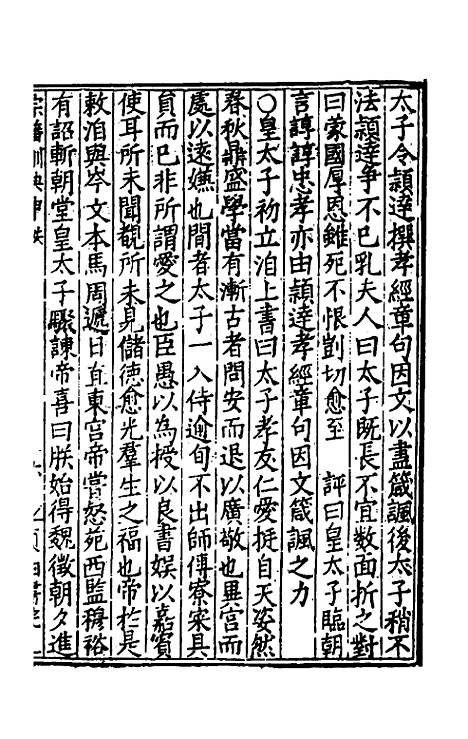 太子令頴逹撰孝經章句因文以盡箴諷後太子稍不
法頴逹爭不已乳夫人曰太子既長不宜數面折之對
曰蒙國厚恩雖死不恨剴切愈至　評曰皇太子臨朝
言諄諄忠孝亦由頴逹孝經章句因文箴諷之力
○皇太子初立洎上書曰太子孝友仁愛挺自天姿然
春秋鼎盛學當有漸古者問安而退以廣敬也異宮而
處以遠嫌也間者太子一入侍逾旬不出師傅寮寀具
員而已非所謂愛之也臣愚以為授以良書娛以嘉賓
使耳所未聞覩所未見儲德愈光羣生之福也帝於是
敕洎與岑文本馬周遞日直東宮帝嘗怒苑西監穆裕
有詔斬朝堂皇太子驟諫帝喜曰朕始得魏徵朝夕進
宗藩訓典